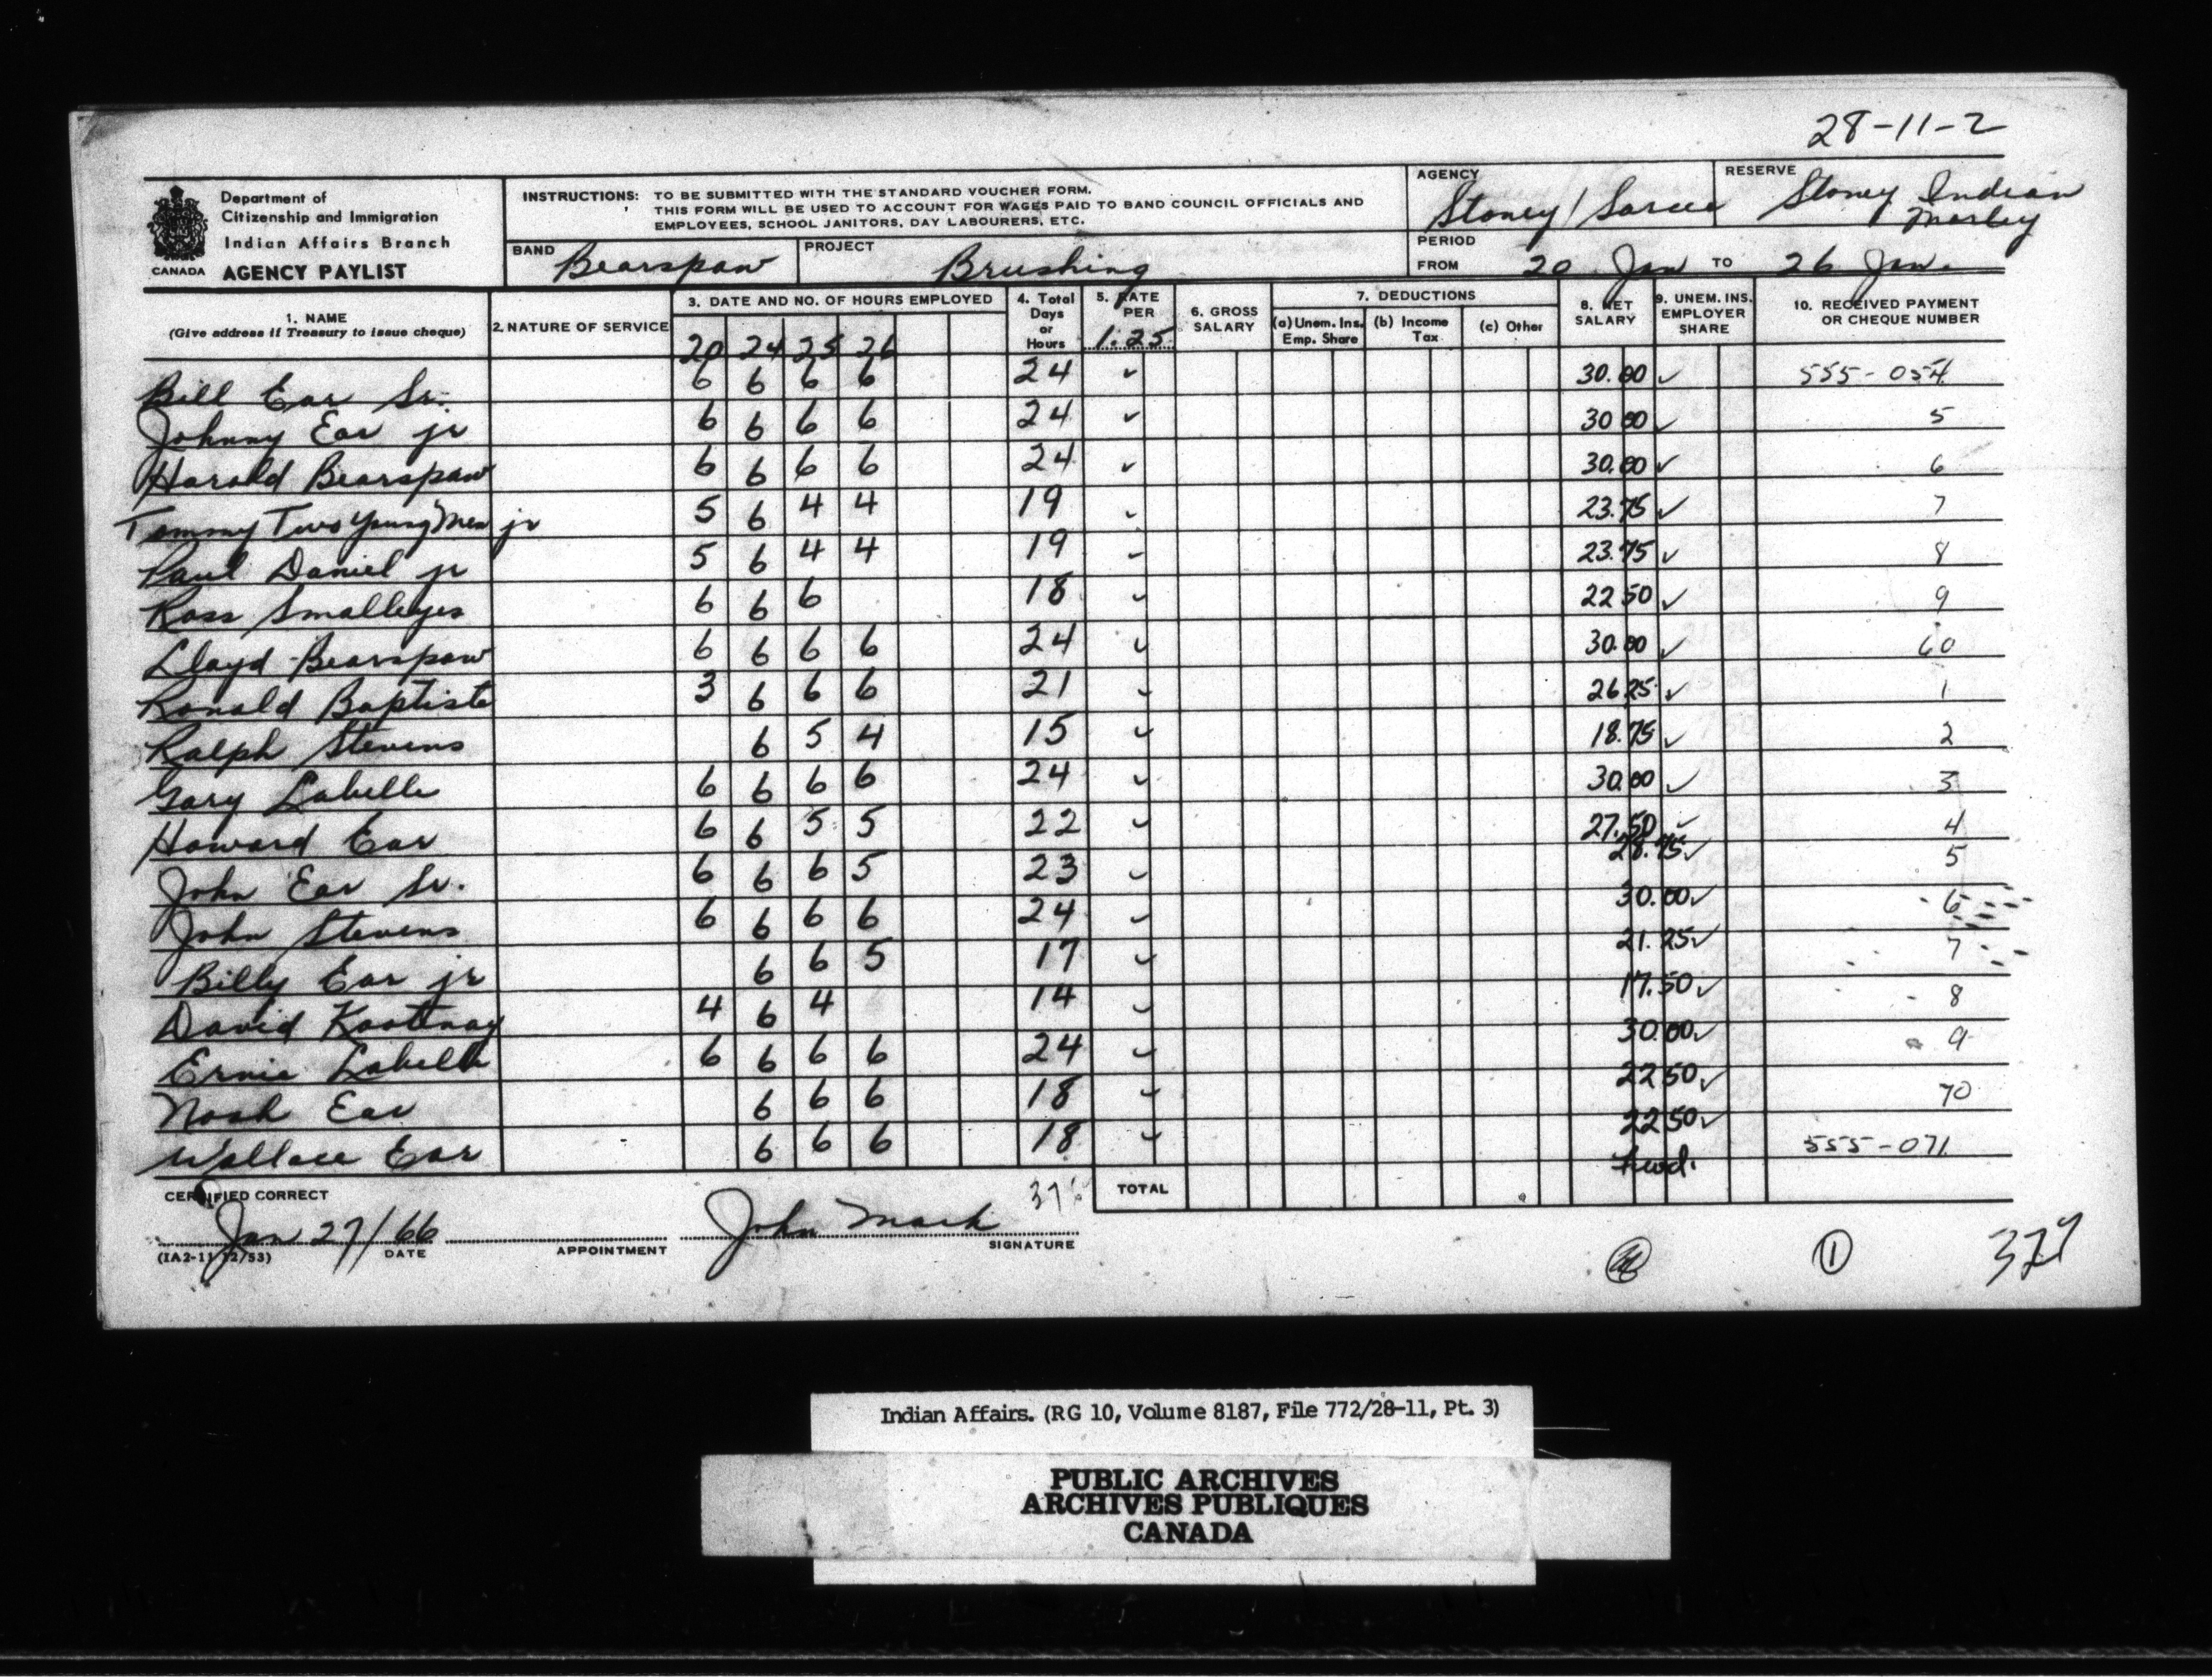 28-11-2
Department of
Citizenship and Immigration
Indian Affairs Branch
CANADA AGENCY PAYLIST
INSTRUCTIONS: TO BE SUBMITTED WITH THE STANDARD VOUCHER FORM.
THIS FORM WILL BE USED TO ACCOUNT FOR WAGES PAID TO BAND COUNCIL OFFICIALS AND
EMPLOYEES, SCHOOL JANITORS, DAY LABOURERS, ETC.
AGENCY Stoney / Sarcee
RESERVE Stoney Indian
Morley
BAND Bearspaw
PROJECT Brushing
PERIOD
FROM 20 Jan TO 26 Jan.
1. NAME
(Give address if Treasury to issue cheque)
2. NATURE OF SERVICE
3. DATE AND NO. OF HOURS EMPLOYED
20 24 25 26
4. Total
Days
or
Hours
5. RATE
PER
1.25
6. GROSS
SALARY
7. DEDUCTIONS
(a) Unem. Ins.
Emp. Share
(b) Income
Tax
(c) Other
8. NET
SALARY
9. UNEM. INS.
EMPLOYER
SHARE
10. RECEIVED PAYMENT
OR CHEQUE NUMBER
Bill Ear Sr. 6 6 6 6 24 ✓ 30.00 ✓ 555-054
Johnny Ear jr 6 6 6 6 24 ✓ 30 00 ✓ 5
Harold Bearspaw 6 6 6 6 24 ✓ 30.00 ✓ 6
Tommy Two Young Men jr 5 6 4 4 19 ✓ 23.75 ✓ 7
Paul Daniel jr 5 6 4 4 19 ✓ 23.75 ✓ 8
Ross Smalleyes 6 6 6 18 ✓ 22 50 ✓ 9
Lloyd Bearspaw 6 6 6 6 24 ✓ 30.00 ✓ 60
Ronald Baptiste 3 6 6 6 21 ✓ 26 25 ✓ 1
Ralph Stevens 6 5 4 15 ✓ 18.75 ✓ 2
Gary Labelle 6 6 6 6 24 ✓ 30.00 ✓ 3
Howard Ear 6 6 5 5 22 ✓ 27.50 ✓ 4
John Ear Sr. 6 6 6 5 23 ✓ 28.75 ✓ 5
John Stevens 6 6 6 6 24 ✓ 30.00 ✓ 6
Billy Ear jr 6 6 5 17 ✓ 21.25 ✓ 7
David Kootenay 4 6 4 14 ✓ 17.50 ✓ 8
Ernie Labelle 6 6 6 6 24 ✓ 30.00 ✓ 9
Noah Ear 6 6 6 18 ✓ 22 50 ✓ 70
Wallace Ear 6 6 6 18 ✓ 22 50 ✓ 555-071
fwd.
CERTIFIED CORRECT
TOTAL
Jan 27/66 John Mark
DATE APPOINTMENT SIGNATURE
(IA2-11 12/53)
1
Indian Affairs. (RG 10, Volume 8187, File 772/28-11, Pt. 3)
PUBLIC ARCHIVES
ARCHIVES PUBLIQUES
CANADA